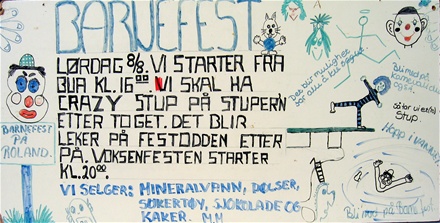 BARNEFEST
LØRDAG 8/8. VI STARTER FRA
BUA KL. 16⁰⁰. VI SKAL HA
CRAZY STUP PÅ STUPERN
ETTER TOGET. DET BLIR
LEKER PÅ FESTODDEN ETTER
PÅ. VOKSENFESTEN STARTER
KL. 20⁰⁰.
VI SELGER: MINERALVANN, PØLSER,
SUKERTØY, SJOKOLADE OG
KAKER. M.M
BARNEFEST
PÅ
ROLAND.
Det blir muligheter
for alle å bli
Bli med på
Stup.
Hopp i vannet
Bli med på Barnefest